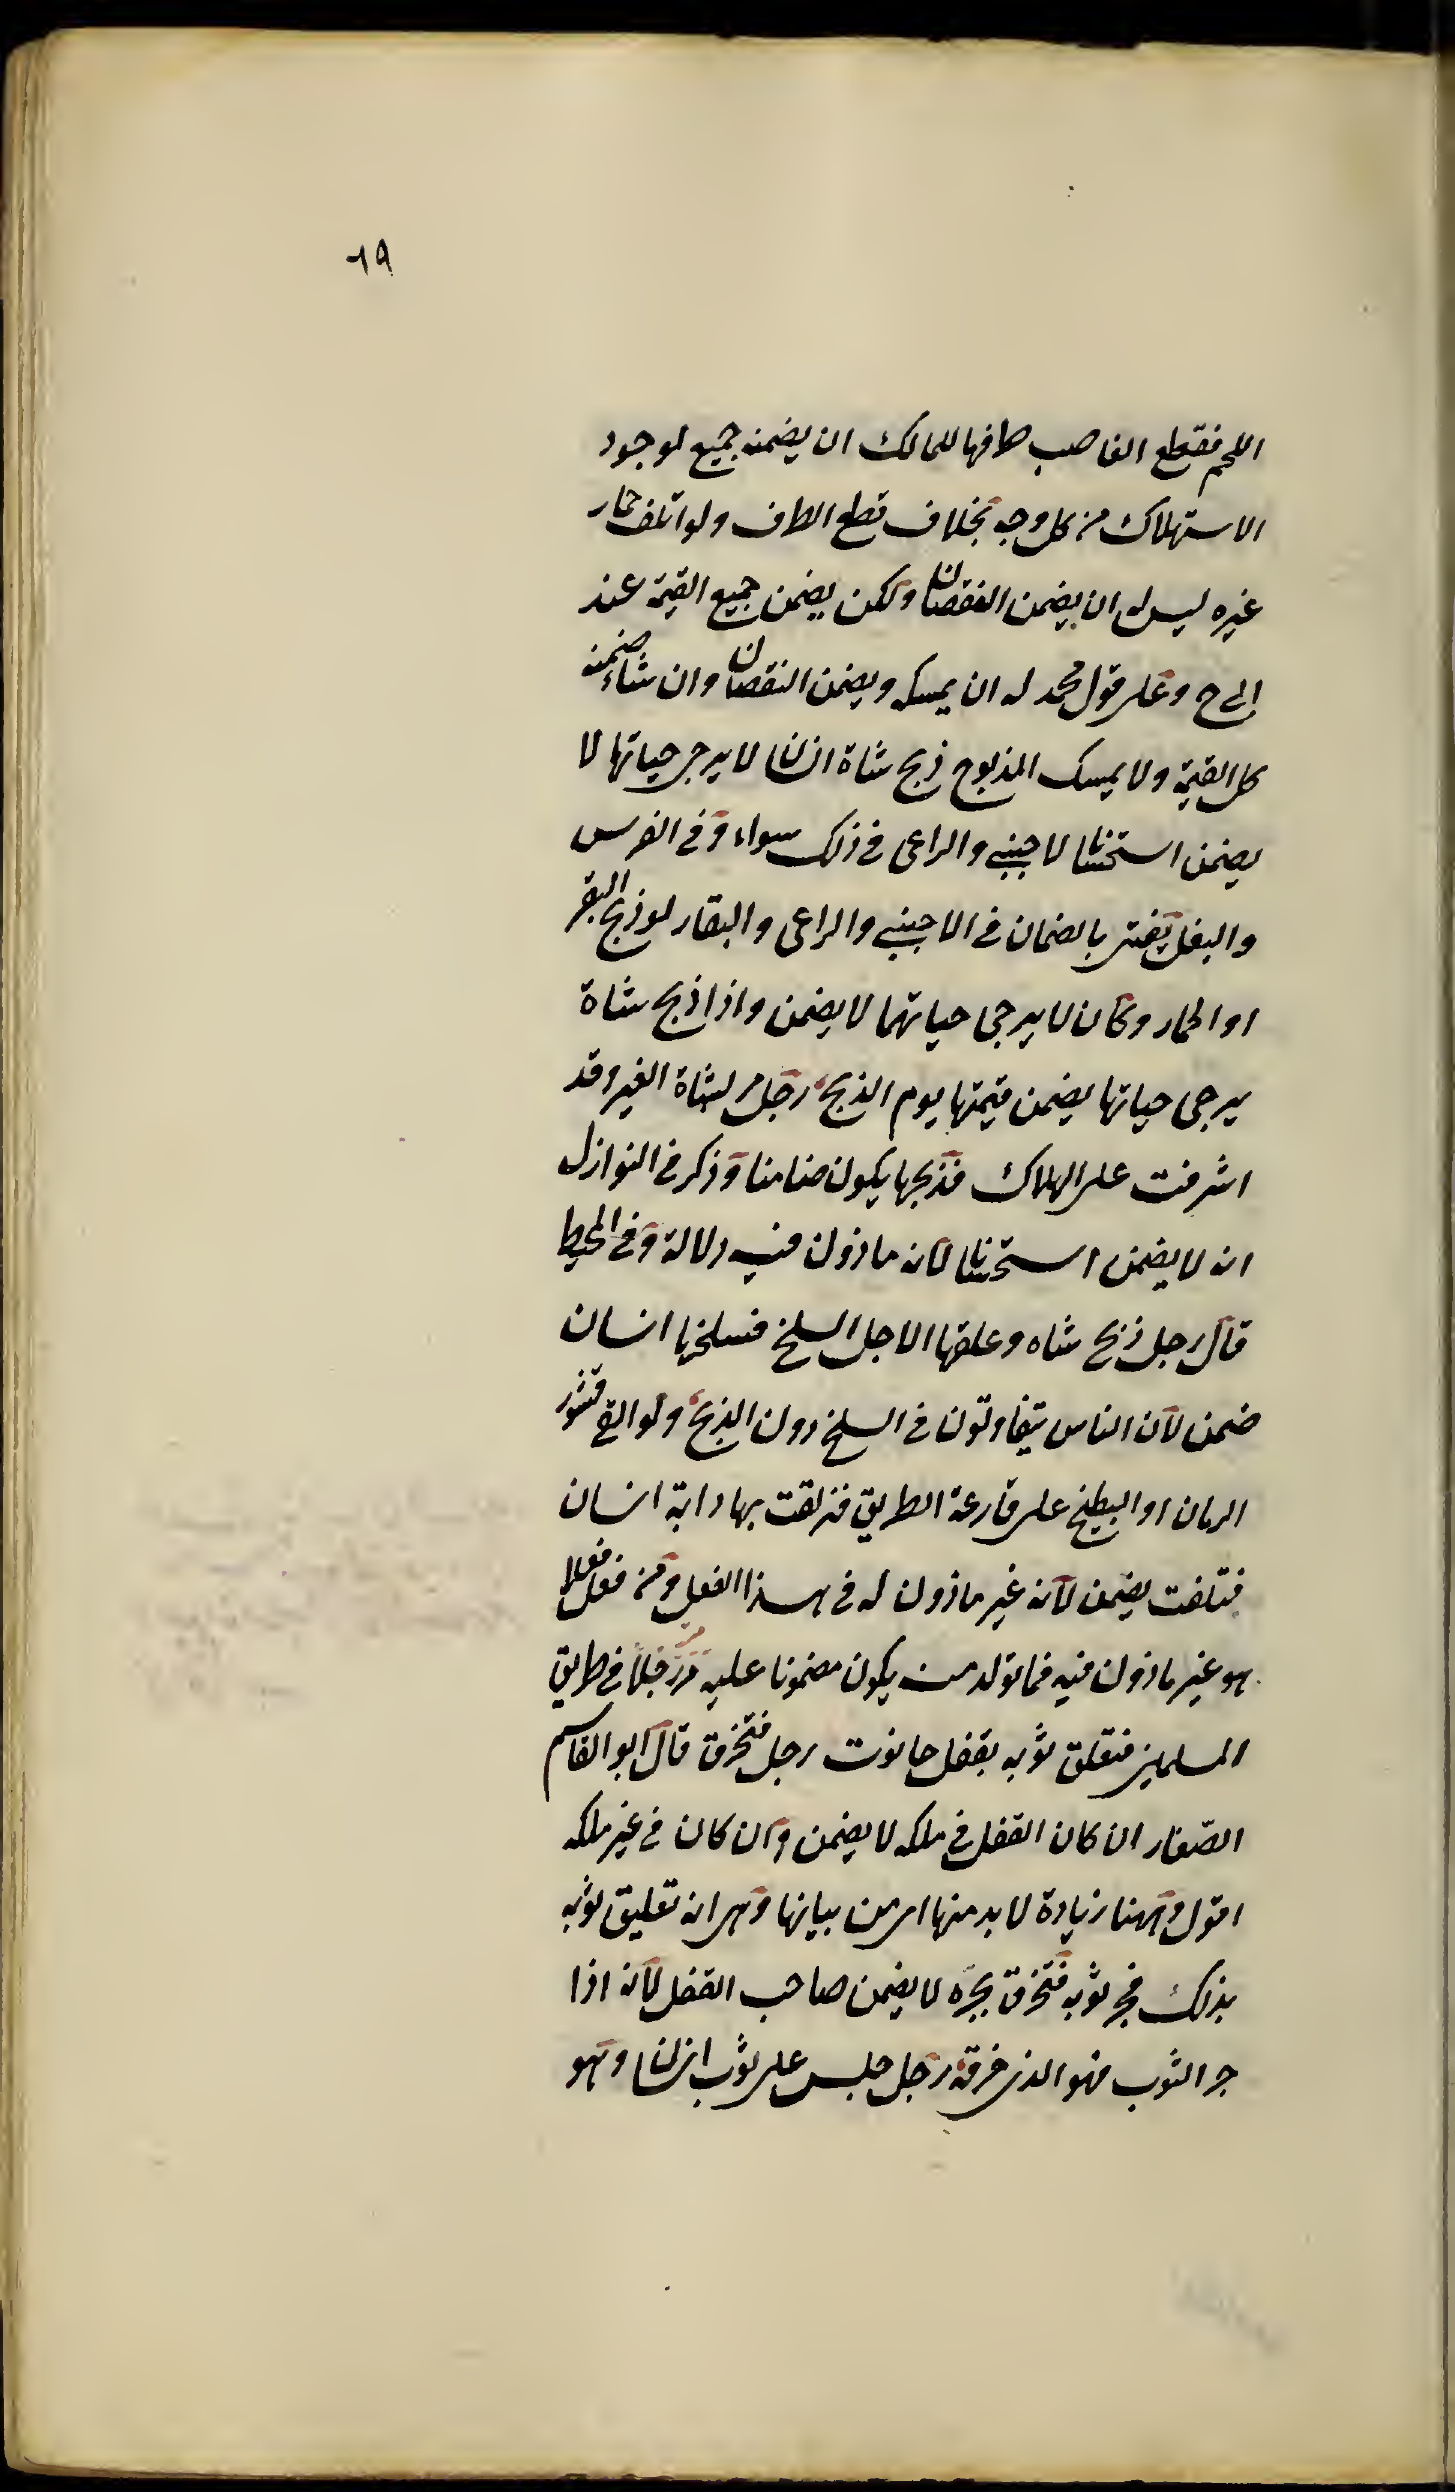 ٦٩
اللحم فقطع الغاصب طرفها للمالك ان يضمنه جميع لوجود
الاستهلاك من كل وجه بخلاف قطع الطرف ولو اتلف حمار
غيره ليس له ان يضمن النقصان ولكن يضمن جميع القيمة عند
ابى ح وعلى قول محمد له ان يمسكه ويضمن النقصان وان شاء ضمنه
كل القيمة ولا يمسك المذبوح ذبح شاة انسان لا يرجى حياتها لا
يضمن استحسانا لاجنبى والراعى فى ذلك سواء وفى الفرس
والبغل يفتى بالضمان فى الاجنبى والراعى والبقار لو ذبح البقر
او الحمار وكان لا يرجى حياتهما لا يضمن واذا ذبح شاة
يرجى حياتها يضمن قيمتها يوم الذبح رجل مر بشاة الغير وقد
اشرفت على الهلاك فذبحها يكون ضامنا وذكر فى النوازل
انه لا يضمن استحسانا لانه ماذون فيه دلالة وفى المحيط
قال رجل ذبح شاه وعلقها لاجل السلخ فسلخها انسان
ضمن لان الناس يتفاوتون فى السلخ دون الذبح ولو القى قشور
الرمان او البطيخ على قارعة الطريق فزلقت بها دابة انسان
فتلفت يضمن لانه غير ماذون له فى هذا الفعل ومن فعل فعلا
هو غير ماذون فيه فما تولد منه يكون مضمونا عليه مر رجل فى طريق
المسلمين فتعلق ثوبه بقفل حانوت رجل فتخرق قال ابو القاسم
الصفار ان كان القفل فى ملكه لا يضمن وان كان فى غير ملكه
اقول وههنا زيادة لا بد منها اى من بيانها وهى انه تعليق ثوبه
بذلك فجر ثوبه فتخرق بجره لا يضمن صاحب القفل لانه اذا
جر الثوب فهو الذى خرقه رجل جلس على ثوب انسان وهو